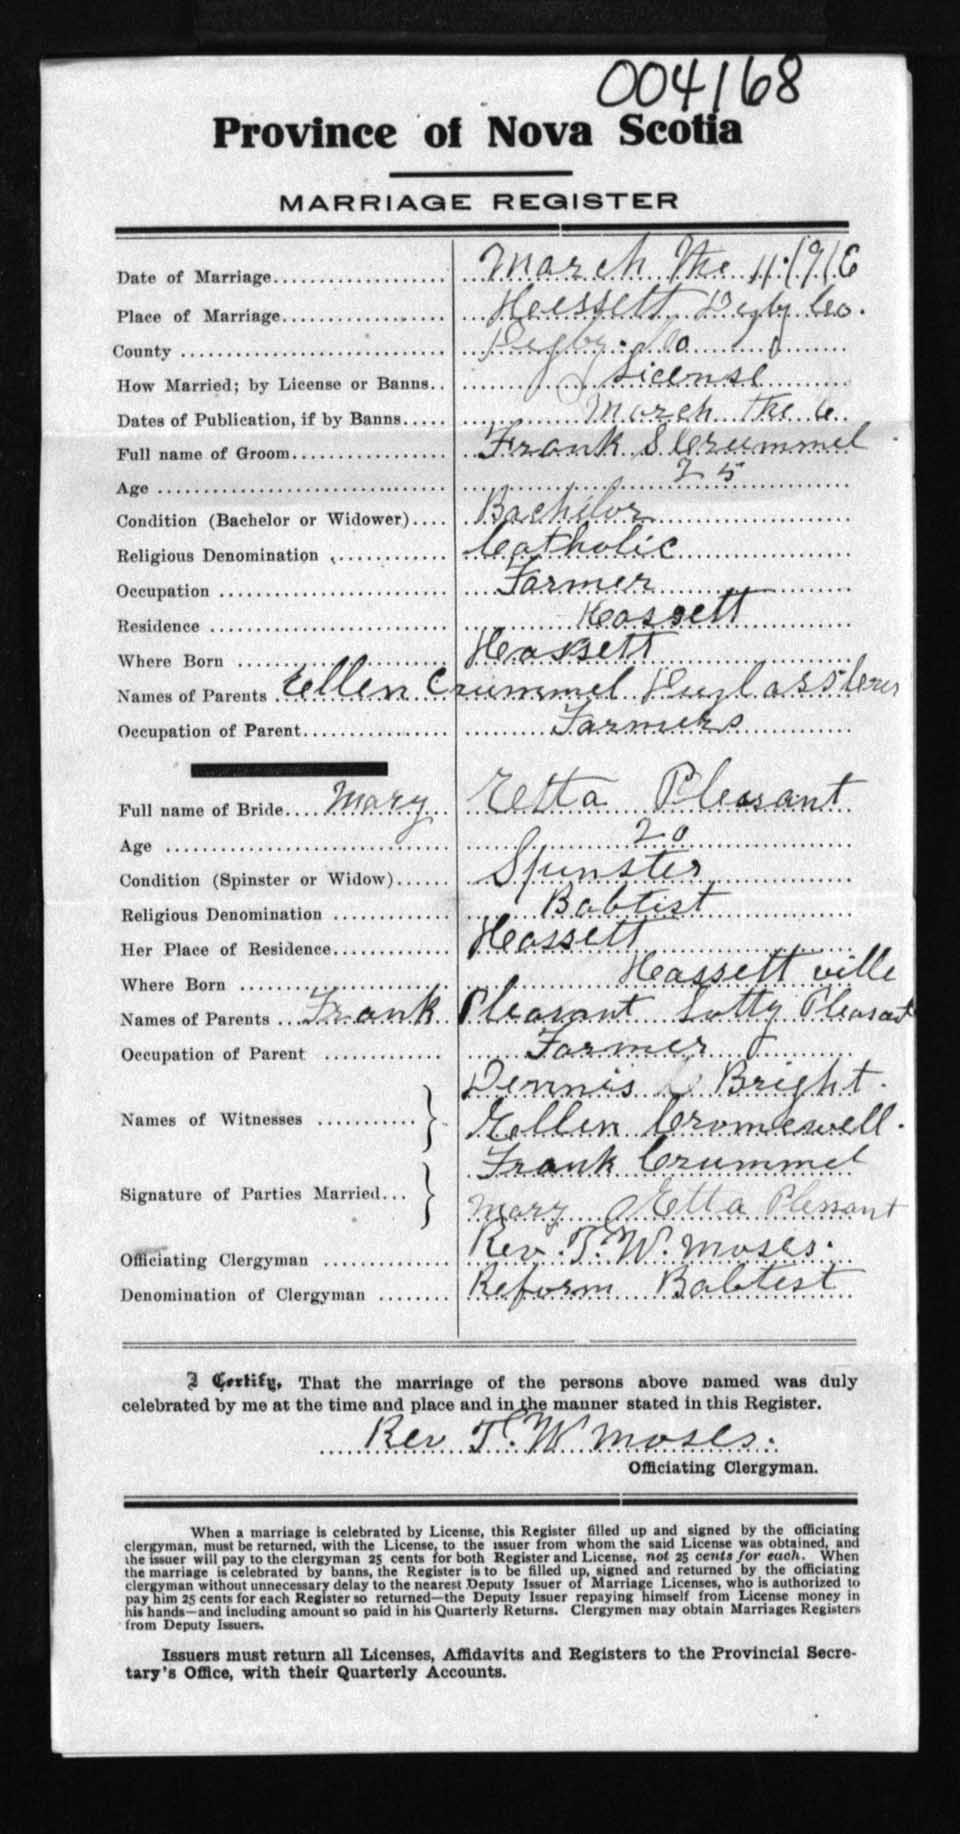 004168
Province of Nova Scotia
MARRIAGE REGISTER
Date of Marriage March the 11 1916
Place of Marriage Hessett Digby Co.
County Digby. Co
How Married; by License or Banns License
Dates of Publication, if by Banns March the 6
Full name of Groom Frank S Crummel
Age 25
Condition (Bachelor or Widower) Bachelor
Religious Denomination Catholic
Occupation Farmer
Residence Hassett
Where Born Hassett
Names of Parents Ellen Crummel
Occupation of Parent Farmers
Full name of Bride Mary Etta Pleasant
Age 20
Condition (Spinster or Widow) Spunster
Religious Denomination Babtist
Her Place of Residence Hassett
Where Born Hassett ville
Names of Parents Frank Pleasant Lotty Pleasant
Occupation of Parent Farmer
Names of Witnesses Dennis Bright.
Ellen Cromewell.
Signature of Parties Married Frank Crummel
Mary Etta Plessant
Officiating Clergyman Rev. T. W. Moses.
Denomination of Clergyman Reform Babtist
I Certify, That the marriage of the persons above named was duly
celebrated by me at the time and place and in the manner stated in this Register.
Rev T. W Moses.
Officiating Clergyman.
When a marriage is celebrated by License, this Register filled up and signed by the officiating
clergyman, must be returned, with the License, to the issuer from whom the said License was obtained, and
the issuer will pay to the clergyman 25 cents for both Register and License, not 25 cents for each. When
the marriage is celebrated by banns, the Register is to be filled up, signed and returned by the officiating
clergyman without unnecessary delay to the nearest Deputy Issuer of Marriage Licenses, who is authorized to
pay him 25 cents for each Register so returned—the Deputy Issuer repaying himself from License money in
his hands—and including amount so paid in his Quarterly Returns. Clergymen may obtain Marriages Registers
from Deputy Issuers.
Issuers must return all Licenses, Affidavits and Registers to the Provincial Secre-
tary's Office, with their Quarterly Accounts.